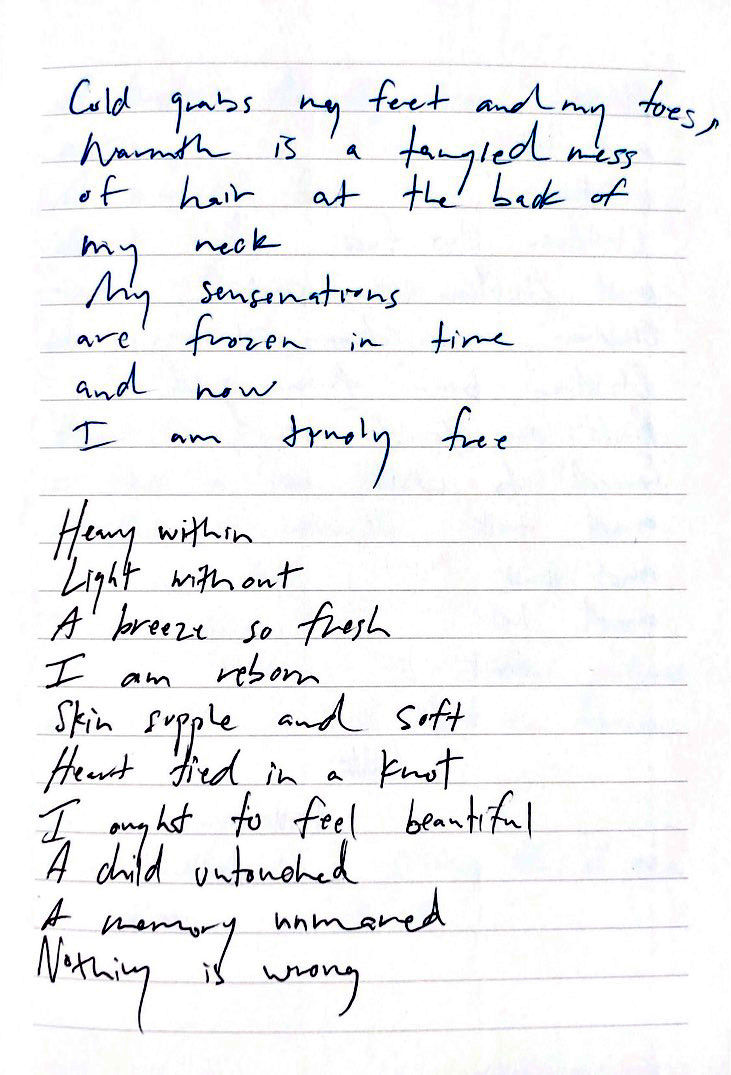 Cold grabs my feet and my toes,
Warmth is a tangled mess
of hair at the back of
my neck
My sensenations
are frozen in time
and now
I am truoly free
Heavy within
Light without
A breeze so fresh
I am reborn
Skin supple and soft
Heart tied in a knot
I ought to feel beautiful
A child untouched
A memory unmared
Nothing is wrong